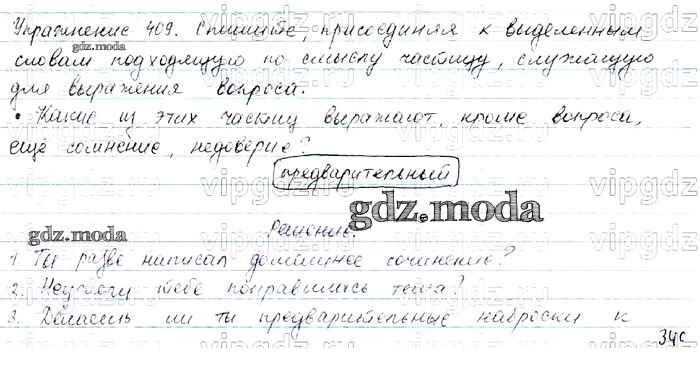 Упражнение 409. Спишите, присоединяя к выделенным
словам подходящую по смыслу частицу, служащую
для выражения вопроса.
• Какие из этих частиц выражают, кроме вопроса,
ещё сомнение, недоверие?
предварительный
gdz.moda
Решение.
1. Ты разве написал домашнее сочинение?
2. Неужели тебе понравилась тема?
3. Делаешь ли ты предварительные наброски к